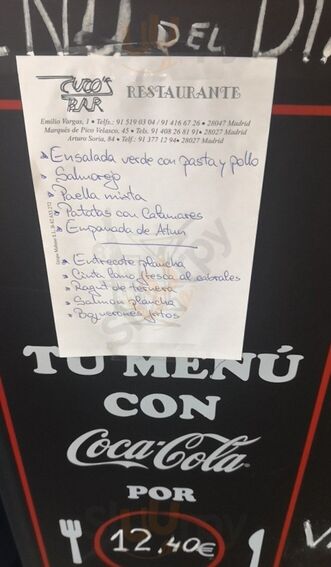 MENÚ DEL DÍA
CUCO'S BAR RESTAURANTE
Emilio Vargas, 1 • Telfs.: 91 519 03 04 / 91 416 67 26 • 28047 Madrid
Marqués de Pico Velasco, 45 • Tels. 91 408 26 81 • 28027 Madrid
Arturo Soria, 84 • Telf.: 91 377 12 94 • 28027 Madrid
Ensalada verde con pasta y pollo
Salmorejo
Paella mixta
Patatas con Calamares
Empanada de Atun
Entrecote plancha
Cinta lomo fresca al cabrales
Ragut de ternera
Salmon plancha
Boquerones fritos
TU MENÚ
CON
Coca-Cola
POR
12,40€